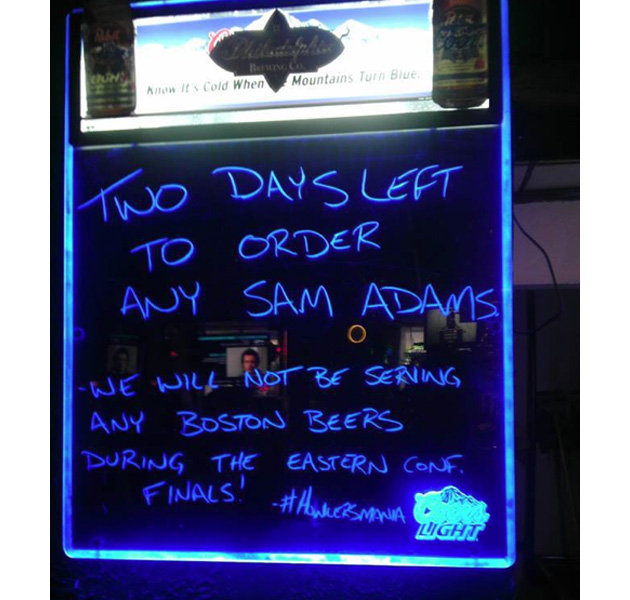 Philadelphia
BREWING CO.
Know It's Cold When Mountains Turn Blue.
LIGHT
TWO DAYS LEFT
TO ORDER
ANY SAM ADAMS.
-WE WILL NOT BE SERVING
ANY BOSTON BEERS
DURING THE EASTERN CONF.
FINALS!
-#HOWLERSMANIA
Coors
LIGHT